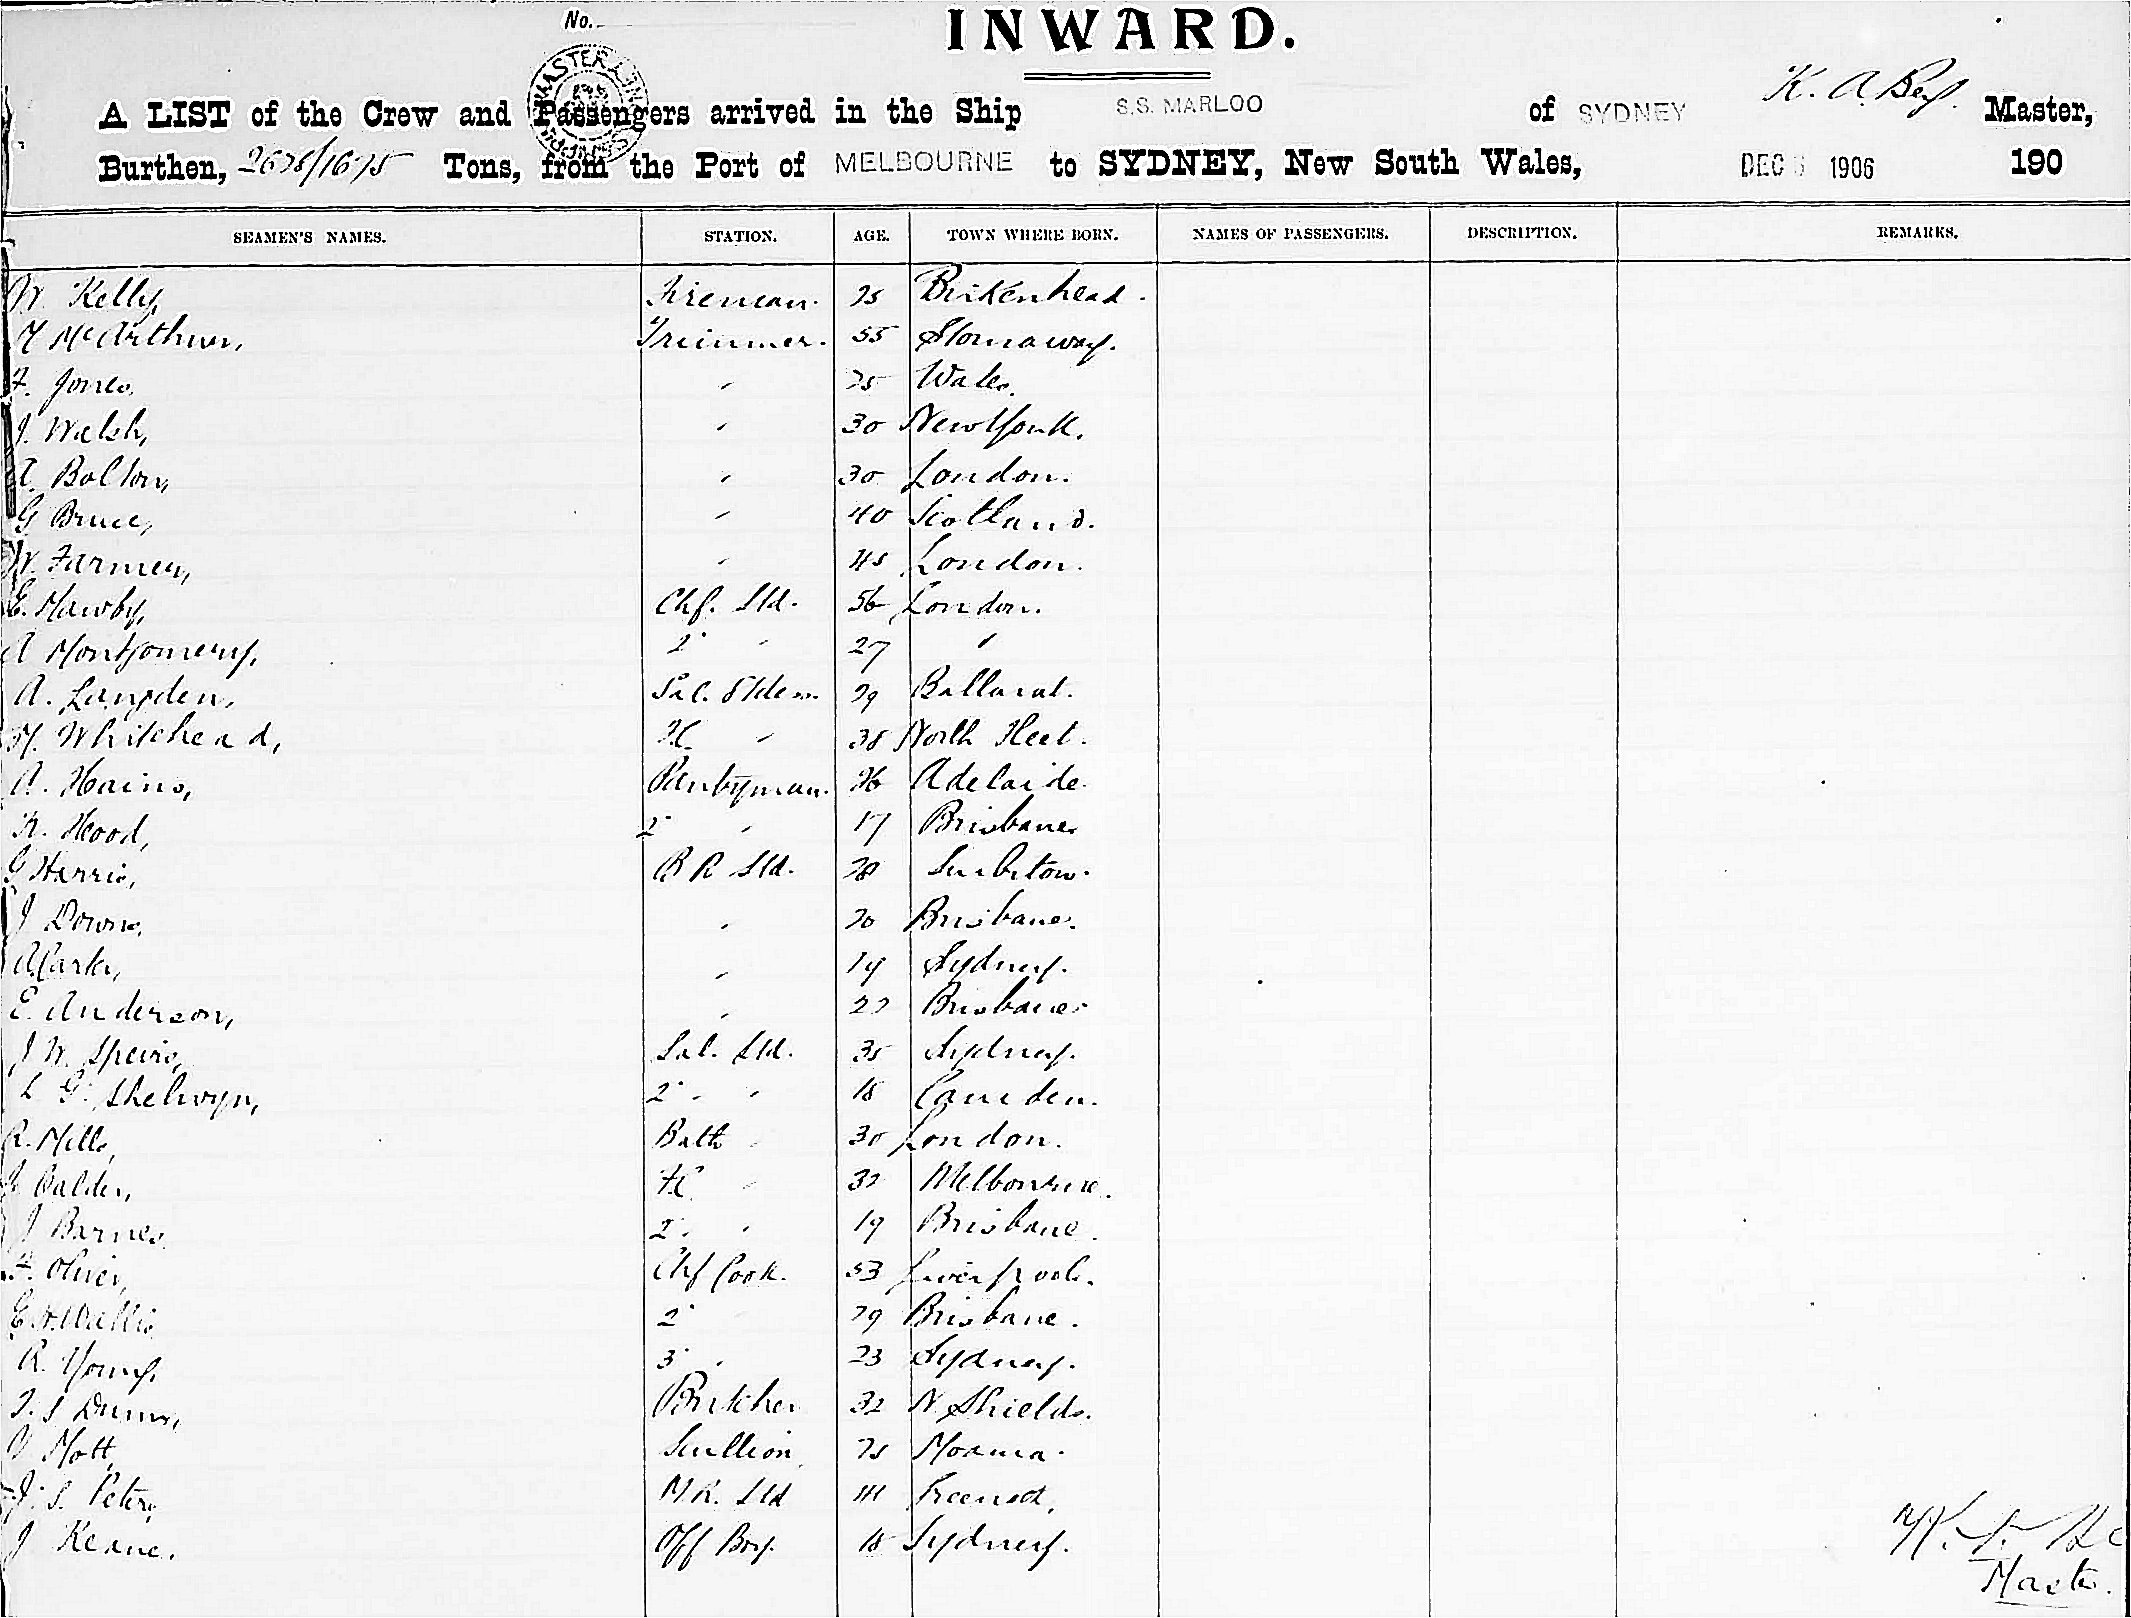 No.
INWARD.
A LIST of the Crew and Passengers arrived in the Ship S.S. MARLOO of SYDNEY K. A. Master,
Burthen, 2628/1675 Tons, from the Port of MELBOURNE to SYDNEY, New South Wales, DEC 1906 190
SEAMEN'S NAMES. STATION. AGE. TOWN WHERE BORN. NAMES OF PASSENGERS. DESCRIPTION. REMARKS.
W. Kelly, Fireman. 25 Birkenhead.
McArthur, Trimmer. 55 Stornaway.
F. Jones, " 25 Wales.
J. Walsh, " 30 New York.
Bolton, " 30 London.
G Bruce, " 40 Scotland.
W. Farmer, " 45 London.
E. Mawby, Chf. Std. 56 London.
A Montgomery, 2" " 27 "
A. Langden, Sal. 29 Ballarat.
H. Whitehead, F.C. " 38 North Fleet.
A. Hains, Pantryman. 26 Adelaide.
Hood, 2" " 17 Brisbane
G Harris, B R Std. 28 Surbiton.
J Downs, " 20 Brisbane.
" 19 Sydney.
E. Anderson, " 22 Brisbane
J W. Speirs, Sal. Std. 35 Sydney.
L G. Shelwyn, 2" " 18 Camden.
R. Mills, Bath " 30 London.
Calder, F.C. " 32 Melbourne.
J Barnes, 2" " 19 Brisbane.
F. Oliver, Chf Cook. 53 Liverpool.
E. Wallis 2" 29 Brisbane.
R. Young, 3" " 23 Sydney.
J. S Dunn, Butcher 32 N. Shields.
Mott, Scullion, 25 Moama.
J. S. Peters, M.R. Std
J Keane. Off Boy. 18 Sydney.
Master.